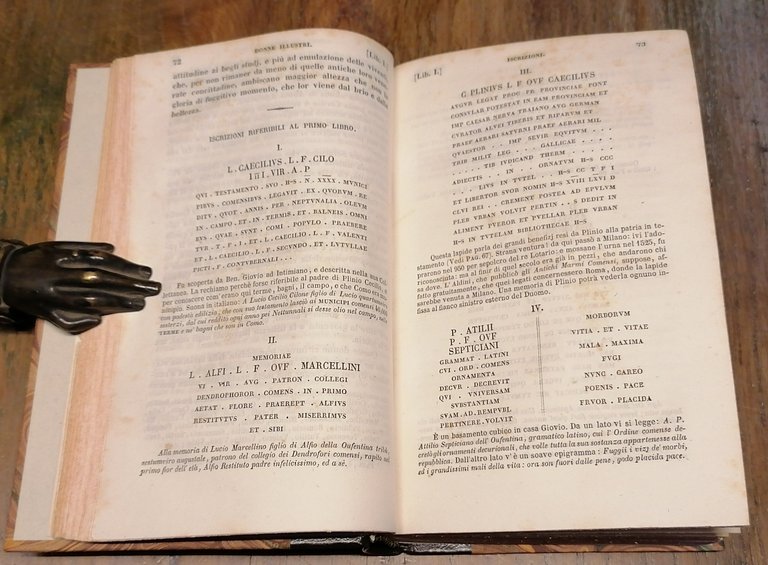 72 DONNE ILLUSTRI. [Lib. I.]
attitudine ai begli studj, e più ad emulazione delle viventi,
che, per non rimaner da meno di quelle antiche loro vene-
rate concittadine, ambiscano maggior altezza che non la
gloria di fuggitivo momento, che lor viene dal brio e dalla
bellezza.
ISCRIZIONI RIFERIBILI AL PRIMO LIBRO.
I.
L. CAECILIVS. L. F. CILO
IIII. VIR. A. P
QVI . TESTAMENTO . SVO . H-S . N . XXXX . MVNICI
PIBVS . COMENSIBVS . LEGAVIT . EX . QVORVM . RE
DITV . QVOT . ANNIS . PER . NEPTVNALIA . OLEVM
IN . CAMPO . ET . IN . TERMIS . ET . BALNEIS . OMNI
BVS . QVAE . SVNT . COMI . POPVLO . PRAEBERE
TVR . T . F . I . ET . L . CAECILIO . L . F . VALENTI
ET . L . CAECILIO . L . F . SECVNDO . ET . LVTVLLAE
PICTI . F . CONTVBERNALI . . .
Fu scoperta da Ben. Giovio ad Intimiano, e descritta nella sua Col-
lettanea. La rechiamo perchè forse riferibile al padre di Plinio Cecilio,
per conoscere com'erano qui terme, bagni, il campo, e che Como era mu-
nicipio. Suona in italiano: A Lucio Cecilio Cilone figlio di Lucio quartumviro
con podestà edilizia, che con suo testamento lasciò ai MUNICIPI COMENSI 40,000
sesterzj, dal cui reddito ogni anno pei Nettunnali si desse olio nel campo, nelle
TERME e ne' bagni che son in Como.
II.
MEMORIAE
L . ALFI . L . F . OVF . MARCELLINI
VI . VIR . AVG . PATRON . COLLEGI
DENDROPHOROR . COMENS . IN . PRIMO
AETAT . FLORE . PRAEREPT . ALFIVS
RESTITVTVS . PATER . MISERRIMVS
ET . SIBI
Alla memoria di Lucio Marcellino figlio di Alfio della Oufentina tribù,
sestumviro augustale, patrono del collegio dei Dendrofori comensi, rapito nel
primo fior dell'età, Alfio Restituto padre infelicissimo, ed a sè.
[Lib. I.] ISCRIZIONI. 73
III.
C PLINIVS L F OVF CAECILIVS
AVGVR LEGAT PROC PR PROVINCIAE PONT
CONSVLAR POTESTAT IN EAM PROVINCIAM ET
IMP CAESAR NERVA TRAIANO AVG GERMAN
CVRATOR ALVEI TIBERIS ET RIPARVM ET
PRAEF AERARI SATVRNI PRAEF AERARI MIL
QVAESTOR . . IMP SEVIR EQVITVM . . .
TRIB MILIT LEG . . . GALLICAE . . . .
. . . . . TIB IVDICAND THERM . . . .
ADIECTIS . . IN . . ORNATVM H-S CCC
. . . . LIVS IN TVTEL . . H-S CC T F I
ET LIBERTOR SVOR NOMIN H-S XVIII LXVI D
CLVI REI . . CREMENT POSTEA AD EPVLVM
PLEB VRBAN VOLVIT PERTIN . . S DEDIT IN
ALIMENT PVEROR ET PVELLAR PLEB VRBAN
H-S IN TVTELAM BIBLIOTHECAE H-S
Questa lapide parla dei grandi beneficj resi da Plinio alla patria in te-
stamento (Vedi Pag. 67). Strana ventura! da qui passò a Milano: ivi l'ado-
prarono nel 950 per sepolcro del re Lotario: e mossane l'urna nel 1525, fu
riconosciuta: ma al finir di quel secolo era già in pezzi, che andarono chi
sa dove. L'Aldini, che pubblicò gli Antichi Marmi Comensi, suppose, af-
fatto gratuitamente, che quei legati concernessero Roma, donde la lapide
sarebbe venuta a Milano. Una memoria di Plinio potrà vederla ognuno in-
fissa al fianco sinistro esterno del Duomo.
IV.
P . ATILII
P . F . OVF
SEPTICIANI
GRAMMAT . LATINI
CVI . ORD . COMENS
ORNAMENTA
DECVR . DECREVIT
QVI . VNIVERSAM
SVBSTANTIAM
SVAM . AD . REMPVBL
PERTINERE . VOLVIT
MORBORVM
VITIA . ET . VITAE
MALA . MAXIMA
FVGI
NVNC . CAREO
POENIS . PACE
FRVOR . PLACIDA
È un basamento cubico in casa Giovio. Da un lato vi si legge: A. P.
Attilio Septiciano dell'Oufentina, gramatico latino, cui l'Ordine comense de-
cretò gli ornamenti decurionali, che volle tutta la sua sostanza appartenesse alla
repubblica. Dall'altro lato v'è un soave epigramma: Fuggii i vizj de' morbi,
ed i grandissimi mali della vita: ora son fuori dalle pene, godo placida pace.